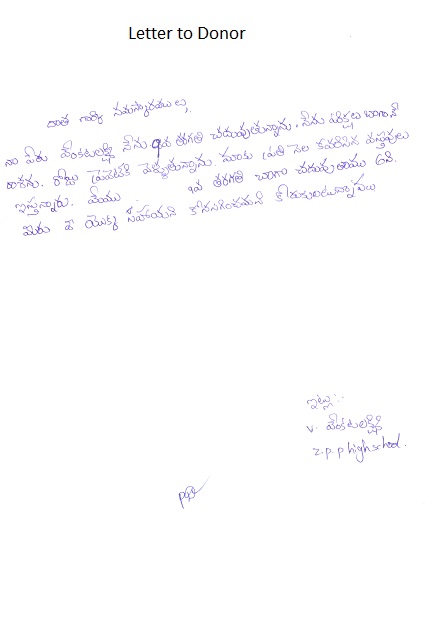 Letter to Donor
దాత గార్కి నమస్కారములు,
నా పేరు వెంకటలక్ష్మి నేను 9వ తరగతి చదువుతున్నాను. నేను పరిక్షలు బాగానే
రాశను. రోజు వెళ్ళుతున్నాను. మాకు ప్రతి నెల కావలసిన వస్తువులు
ఇస్తున్నారు. మేము 9వ తరగతి బాగా చదువుతాము అని.
మీరు మీ యొక్క సహాయని కొనసాగించమని కోరుకుంటున్నాము
ఇట్లు:-
v. వెంకటలక్ష్మి
z.p.p high school.